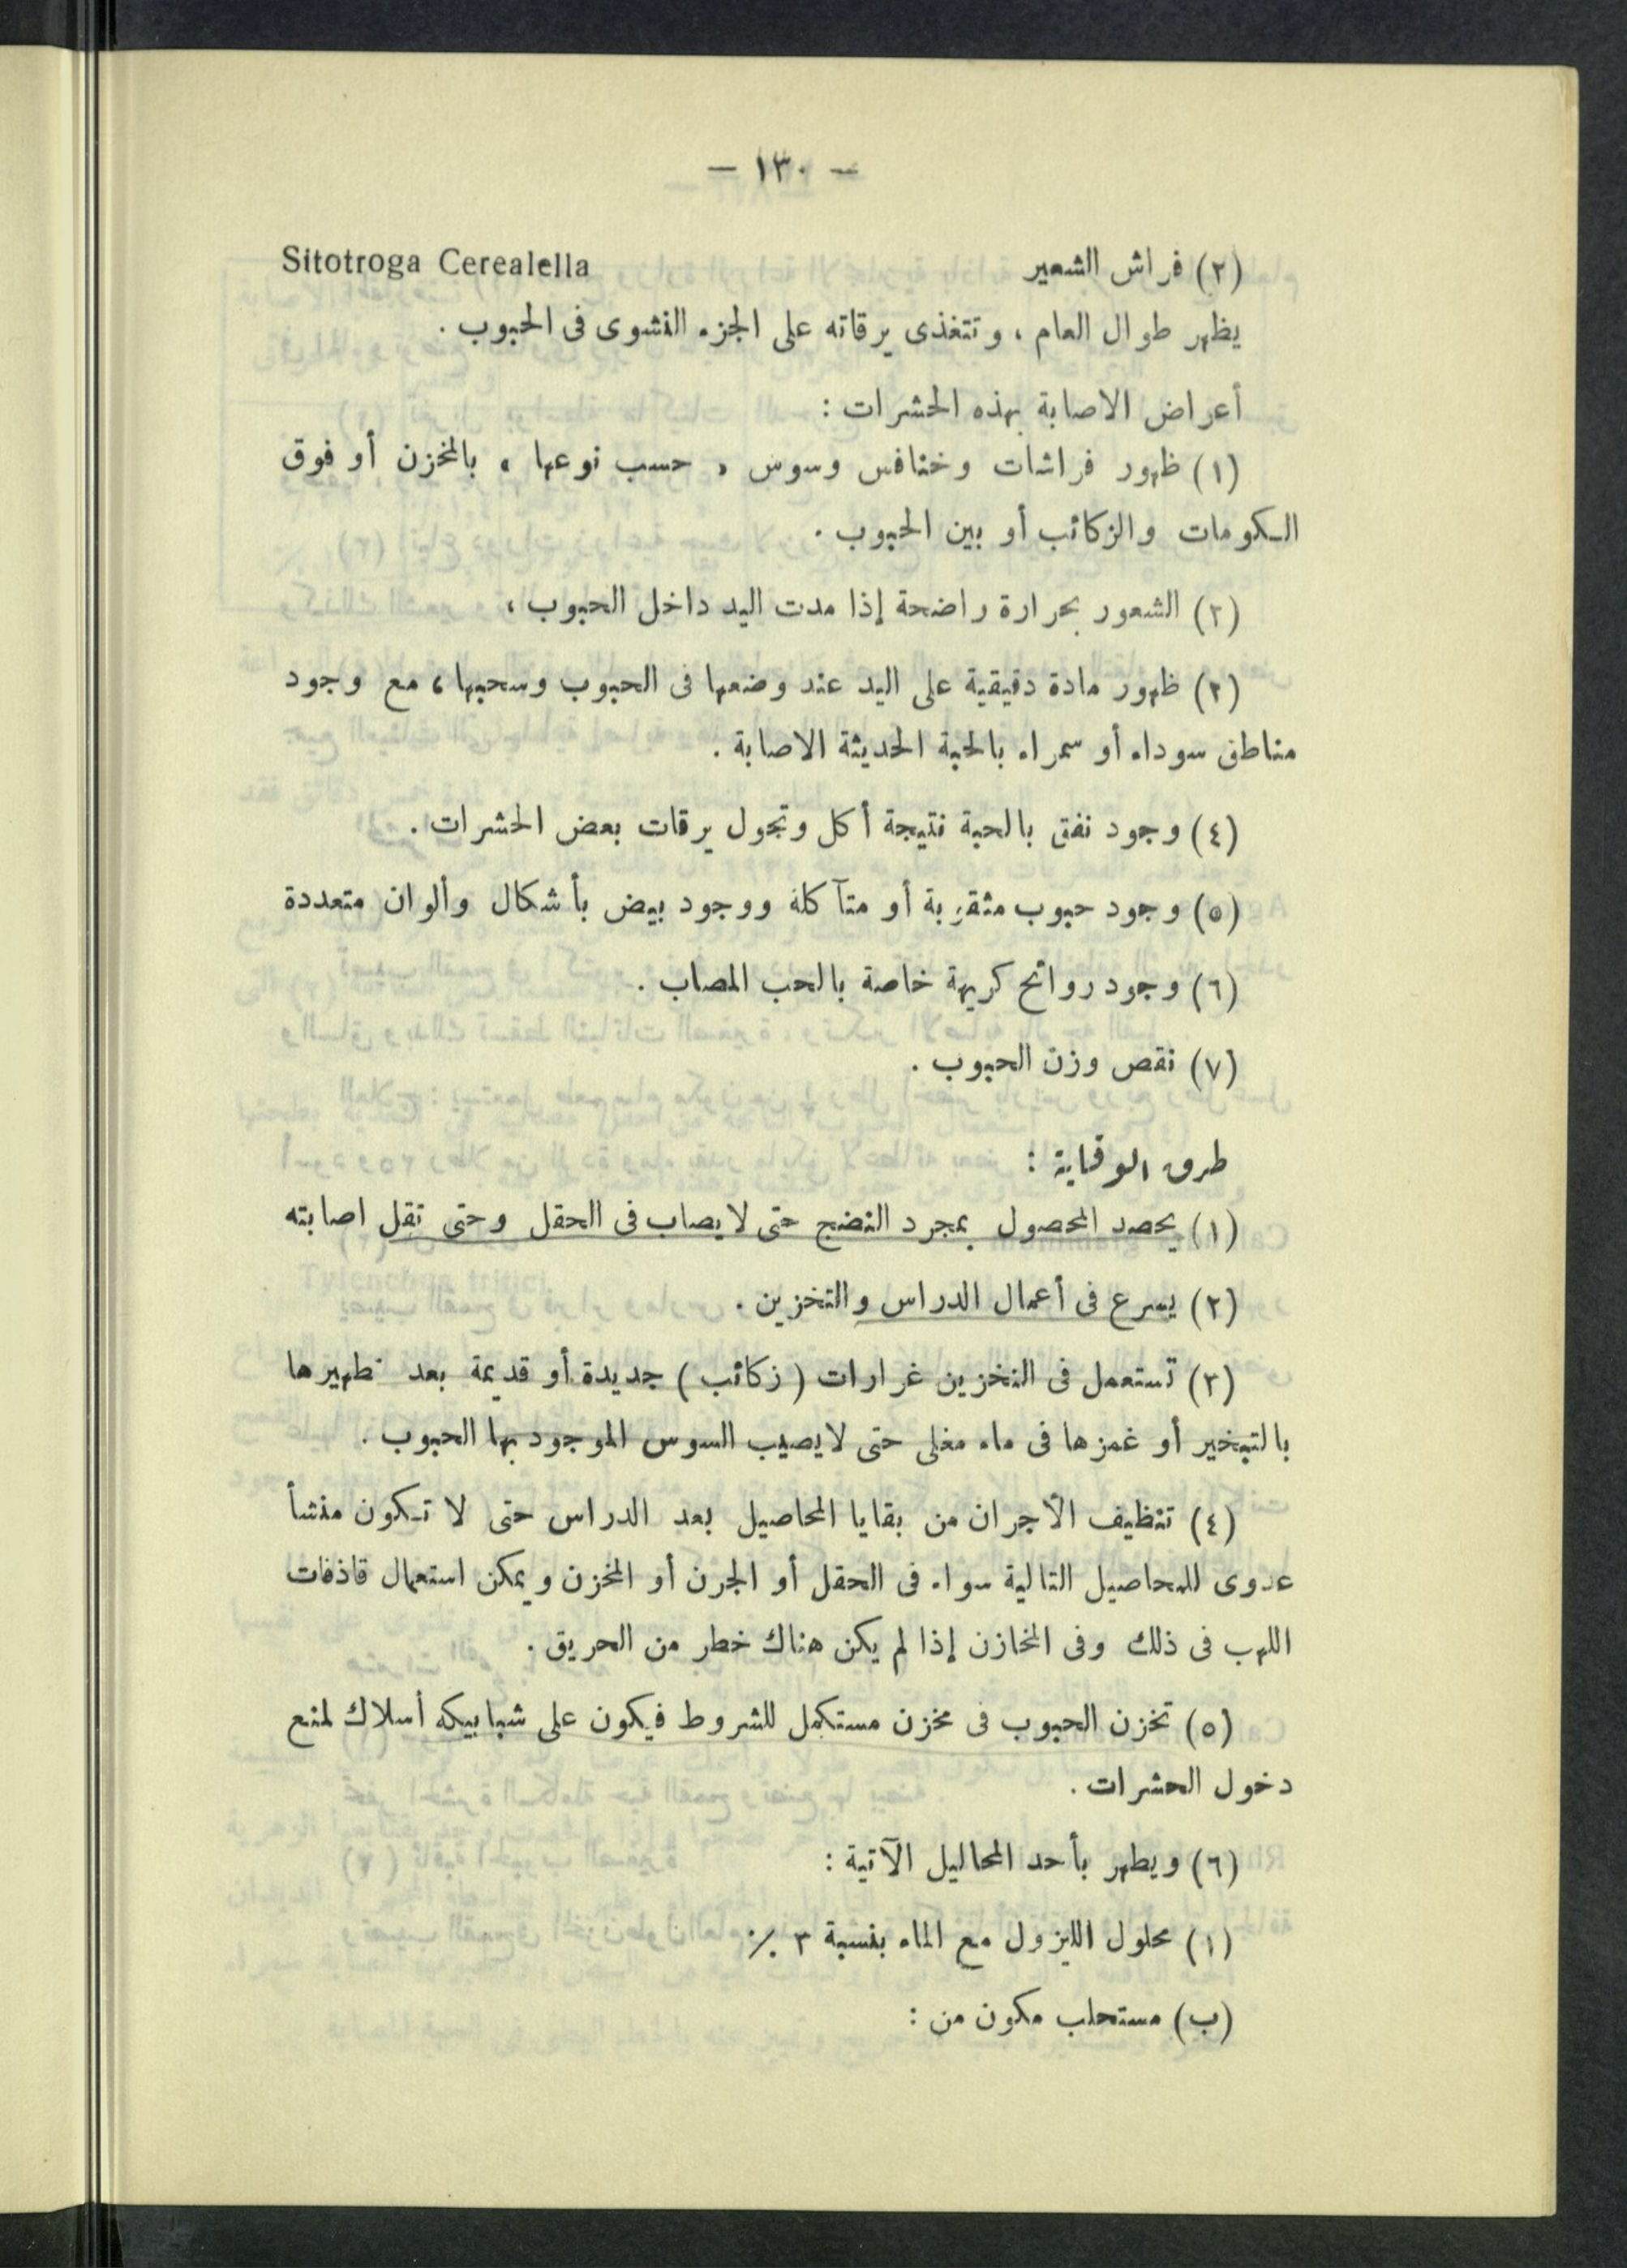 — ١٣٠ —
(٣) فراش الشعير Sitotroga Cerealella
يظهر طوال العام ، وتتغذى يرقاته على الجزء النشوى فى الحبوب .
أعراض الاصابة بهذه الحشرات :
(١) ظهور فراشات وخنافس وسوس « حسب نوعها » بالمخزن أو فوق
الكومات والزكائب أو بين الحبوب .
(٢) الشعور بحرارة راضحة إذا مدت اليد داخل الحبوب ،
(٣) ظهور مادة دقيقية على اليد عند وضعها فى الحبوب وسحبها ، مع وجود
مناطق سوداء أو سمراء بالحبة الحديثة الاصابة .
(٤) وجود نفق بالحبة نتيجة أكل وتجول يرقات بعض الحشرات .
(٥) وجود حبوب مثقوبة أو متآكلة ووجود بيض بأشكال وألوان متعددة
(٦) وجود روائح كريهة خاصة بالحب المصاب .
(٧) نقص وزن الحبوب .
طرق الوقاية :
(١) يحصد المحصول بمجرد النضج حتى لا يصاب فى الحقل وحتى تقل اصابته
(٢) يسرع فى أعمال الدراس والتخزين .
(٣) تستعمل فى التخزين غرارات ( زكائب ) جديدة أو قديمة بعد تطهيرها
بالتبخير أو غمزها فى ماء مغلى حتى لا يصيب السوس الموجود بها الحبوب .
(٤) تنظيف الأجران من بقايا المحاصيل بعد الدراس حتى لا تكون منشأ
عدوى للمحاصيل التالية سواء فى الحقل أو الجرن أو المخزن ويمكن استعمال قاذفات
اللهب فى ذلك وفى المخازن إذا لم يكن هناك خطر من الحريق .
(٥) تخزن الحبوب فى مخزن مستكمل للشروط فيكون على شبابيكه أسلاك لمنع
دخول الحشرات .
(٦) ويطهر بأحد المحاليل الآتية :
(١) محلول الليزول مع الماء بنسبة ٣ ٪
(ب) مستحلب مكون من :